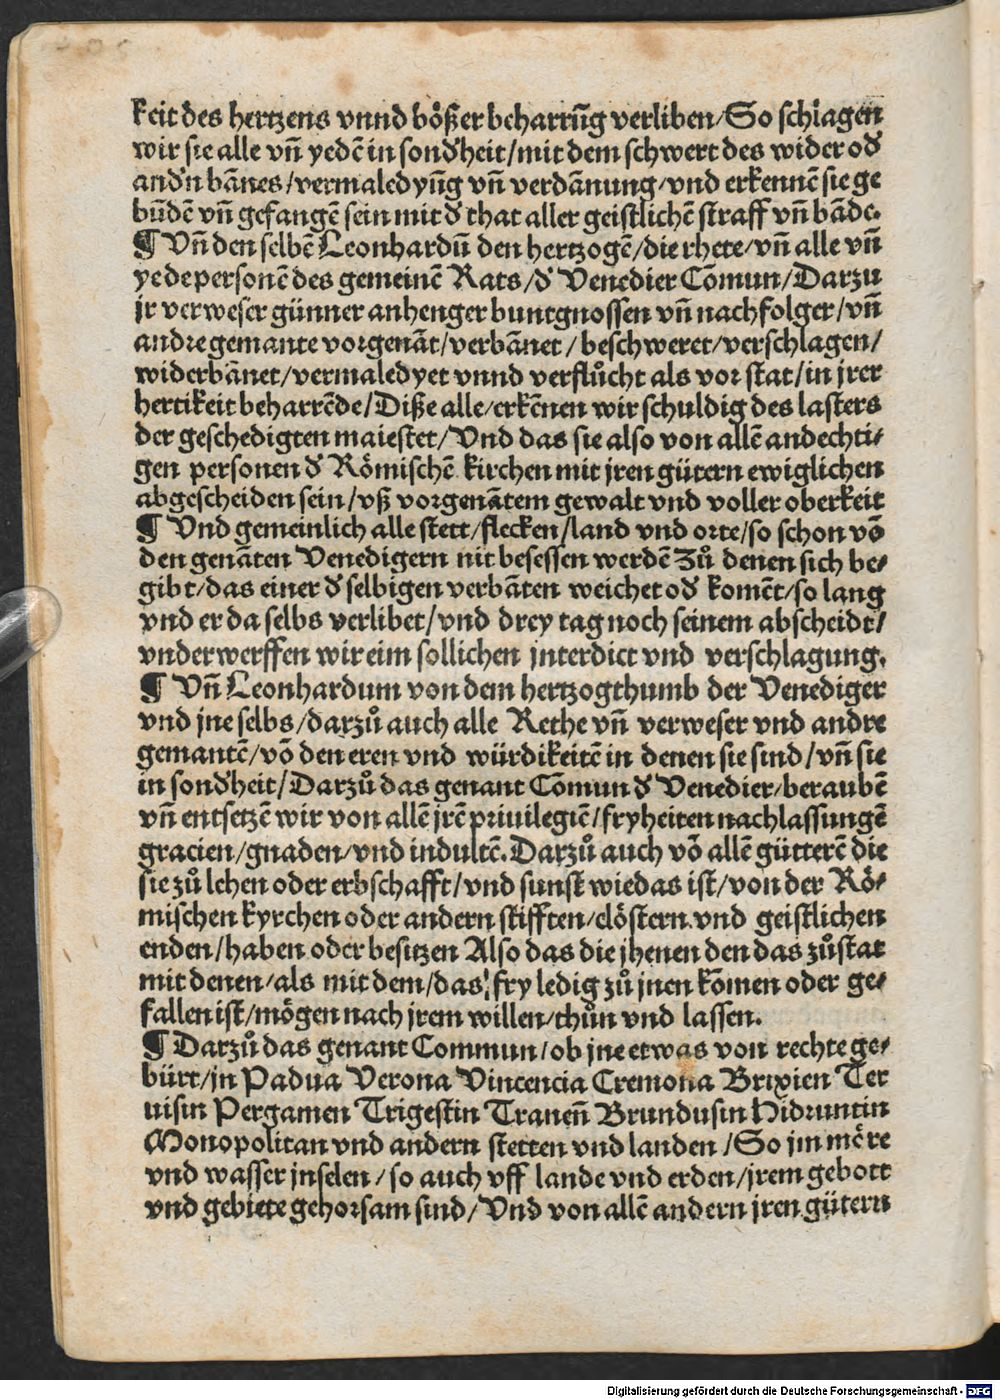 keit des hertzens vnnd bößer beharrũg verliben/So schlagen
wir sie alle vñ yedẽ in sondʼheit/mit dem schwert des wider odʼ
andʼn bãnes/vermaledyũg vñ verdãnung/vnd erkennẽ sie ge
bũdẽ vñ gefangẽ sein mit dʼ that aller geistlichẽ straff vñ bãde.
¶ Vñ den selbẽ Leonhardũ den hertzogẽ/die rhete/vñ alle vñ
yede personẽ des gemeinẽ Rats/dʼ Venedier Cõmun/Darzu
jr verweser günner anhenger buntgnossen vñ nachfolger/vñ
andre gemante vorgenãt/verbãnet/beschweret/verschlagen/
widerbãnet/vermaledyet vnnd verflůcht als vor stat/in jrer
hertikeit beharrẽde/Diße alle/erkẽnen wir schuldig des lasters
der geschedigten maiestet/Vnd das sie also von allẽ andechti⸗
gen personen dʼ Römischẽ kirchen mit jren gütern ewiglichen
abgescheiden sein/vß vorgenãtem gewalt vnd voller oberkeit
¶ Vnd gemeinlich alle stett/flecken/land vnd orte/so schon võ
den genãten Venedigern nit besessen werdẽ Zů denen sich be⸗
gibt/das einer dʼ selbigen verbãten weichet odʼ komẽt/so lang
vnd er da selbs verlibet/vnd drey tag noch seinem abscheidt/
vnderwerffen wir eim sollichen jnterdict vnd verschlagung.
¶ Vñ Leonhardum von dem hertzogthumb der Venediger
vnd jne selbs/darzů auch alle Rethe vñ verweser vnd andre
gemantẽ/võ den eren vnd würdikeitẽ in denen sie sind/vñ sie
in sondʼheit/Darzů das genant Cõmun dʼ Venedier/beraubẽ
vñ entsetzẽ wir von allẽ jrẽ priuilegiẽ/fryheiten nachlassungẽ
gracien/gnaden/vnd indultẽ.Darzů auch võ allẽ gütterẽ die
sie zů lehen oder erbschafft/vnd sunst wie das ist/von der Rö⸗
mischen kyrchen oder andern stifften/clöstern vnd geistlichen
enden/haben oder besitzen Also das die jhenen den das zůstat
mit denen/als mit dem/das fry ledig zů jnen kõmen oder ge⸗
fallen ist/mögen nach jrem willen/thůn vnd lassen.
¶ Darzů das genant Commun/ob jne etwas von rechte ge⸗
bürt/jn Padua Verona Vincencia Cremona Brixien Ter
uisin Pergamen Trigestin Traneñ Brundusin Hidruntin
Monopolitan vnd andern stetten vnd landen/So jm möre
vnd wasser jnselen/so auch vff lande vnd erden/jrem gebott
vnd gebiete gehorsam sind/Vnd von allẽ andern jren gütern
Digitalisierung gefördert durch die Deutsche Forschungsgemeinschaft - DFG